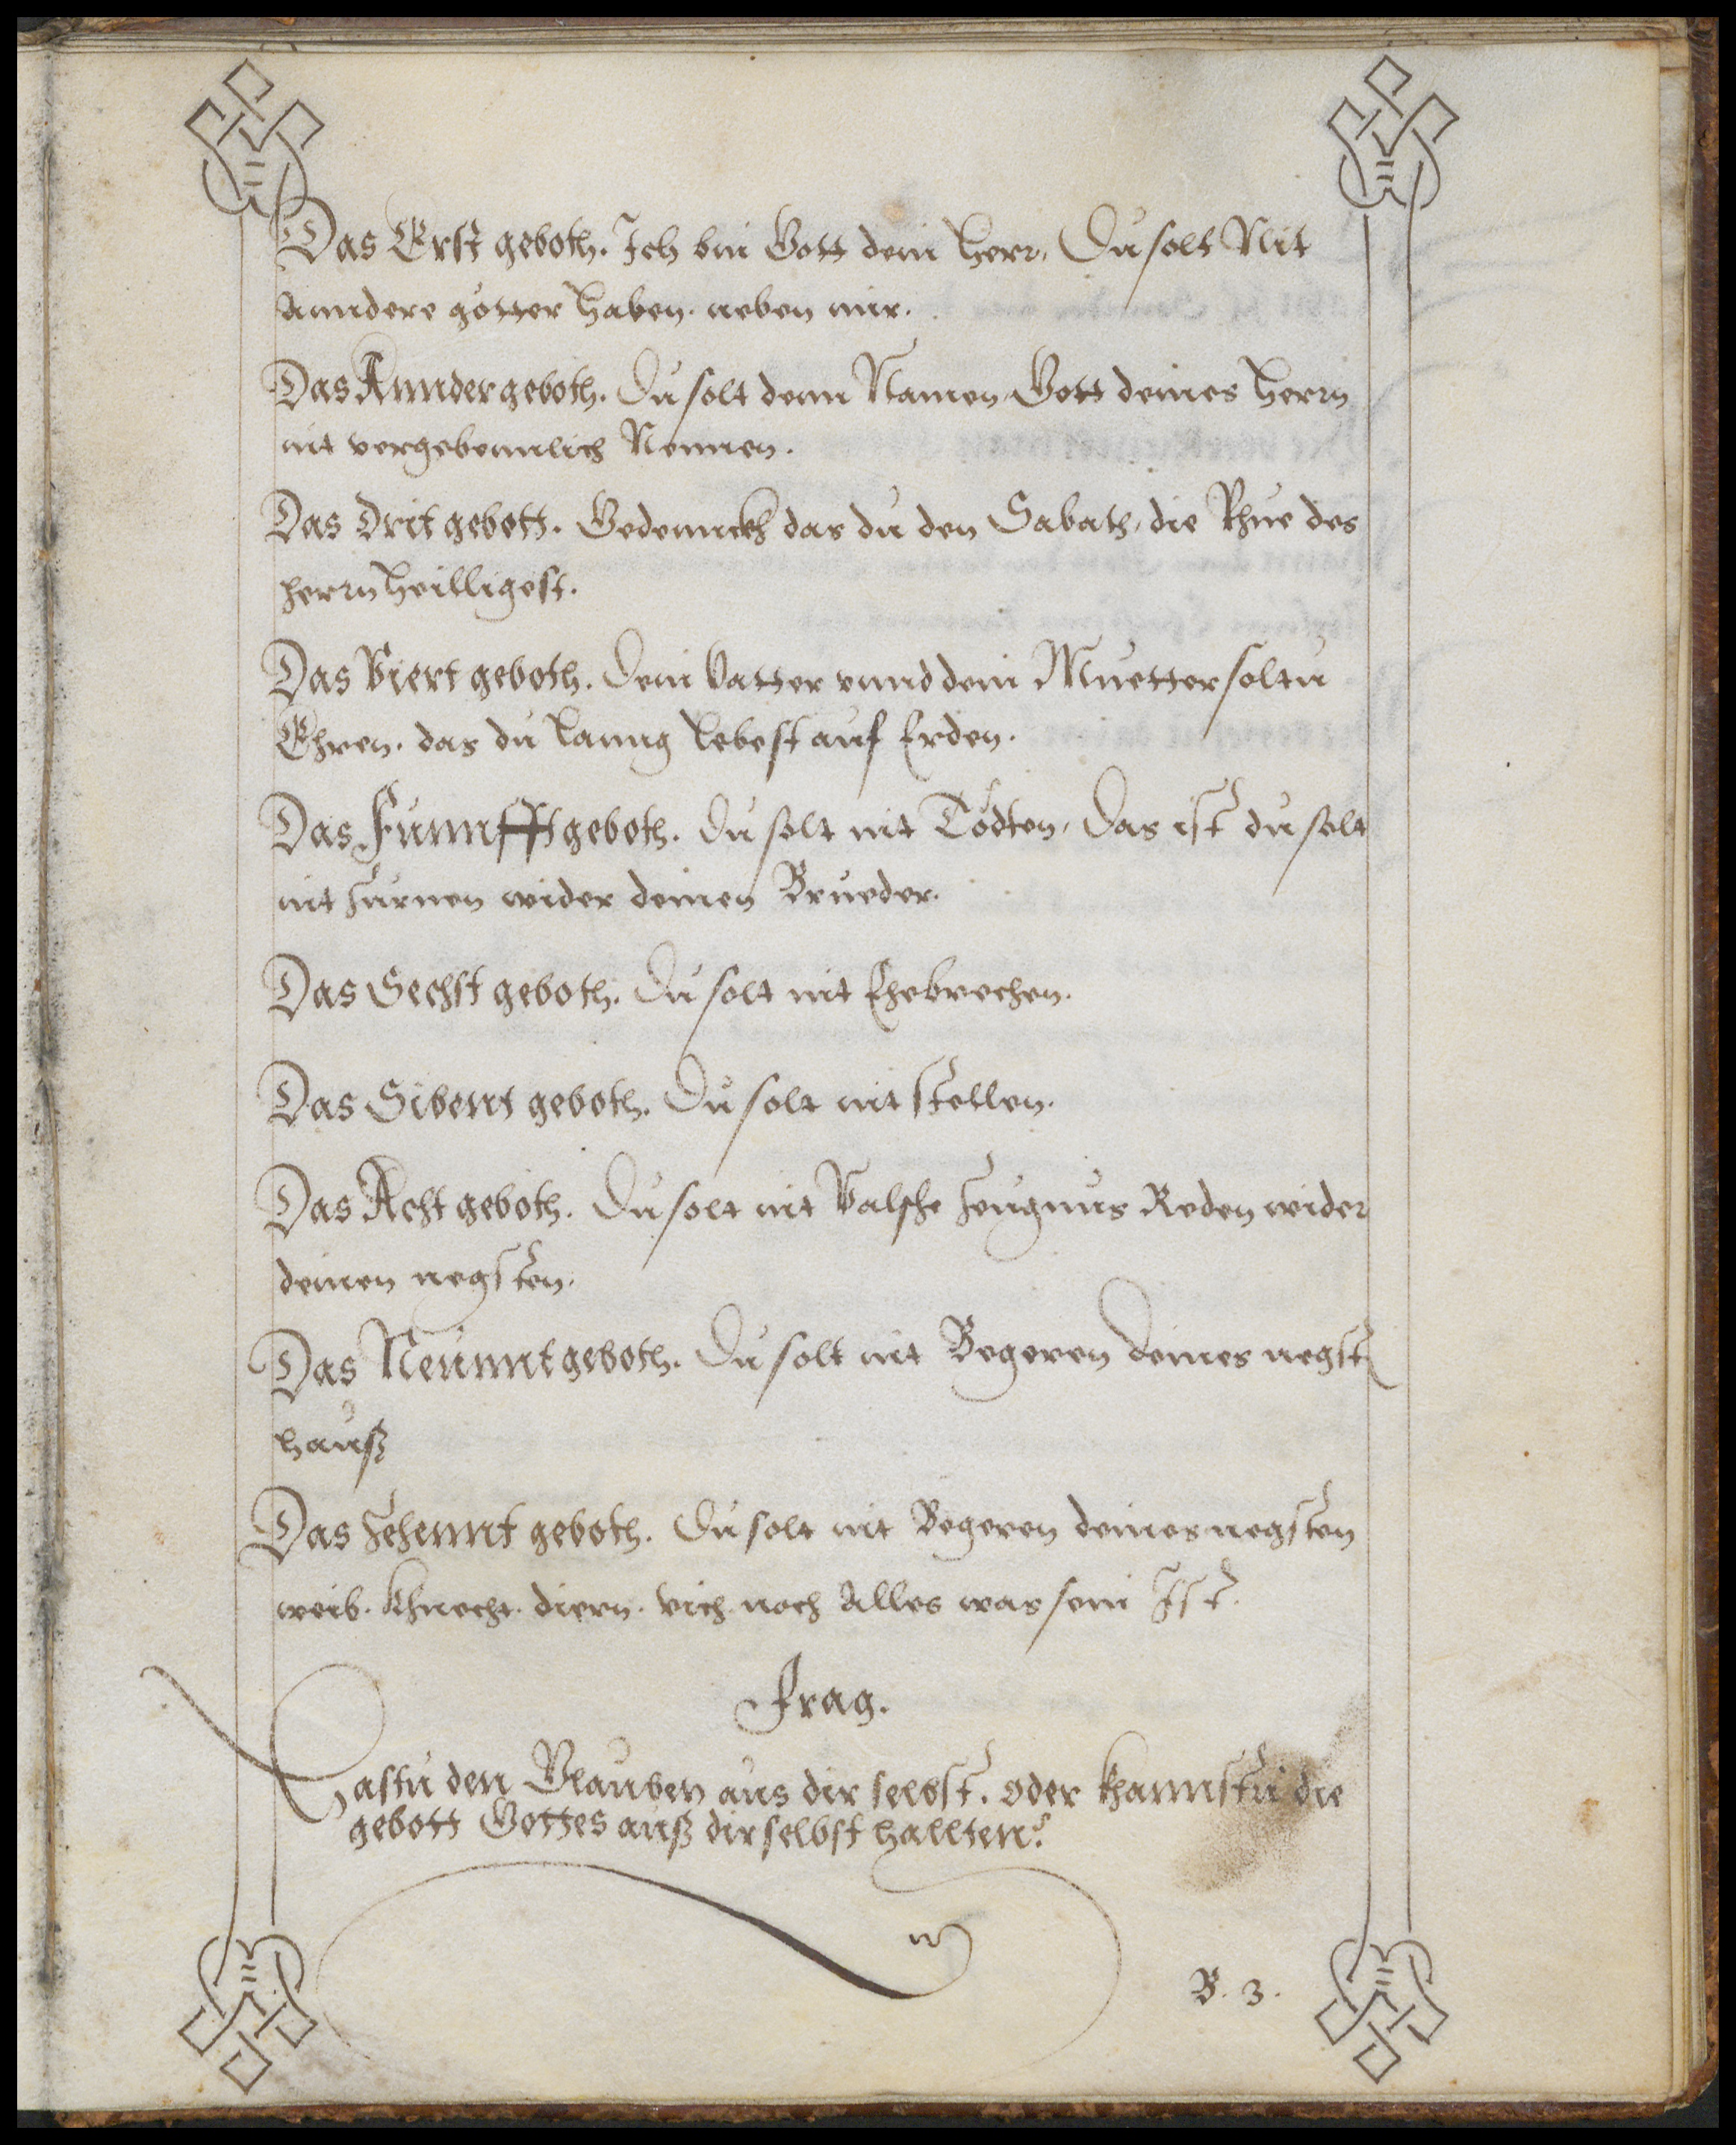 Das Erst geboth. Ich bin Gott dein Herr, Du solt Nit
Anndere götter Haben. neben mir.
Das Annder geboth. Du solt denn Namen Gott deines Herrn
nit vergebennlich Nennen.
Das Drit gebott. Gedennckh das du den Sabath, die Rhue des
herrn Heilligest.
Das Viert geboth. Dein Vatter vnnd dein Muetter soltu
Ehren. das du Lanng Lebest auf Erden.
Das Funnfft geboth. Du solt nit Tödten, Das ist du solt
nit Zurnen wider deinen Brueder.
Das Sechst geboth. Du solt nit Ehebrechen.
Das Sibent geboth. Du solt nit stellen.
Das Acht geboth. Du solt nit Valsche Zeugnus Reden wider
deinen negsten.
Das Neunnt geboth. Du solt nit Begeren deines negsten
Hauß
Das Zehennt geboth. Du solt nit Begeren deines negsten
weib. Khnecht. diern. vich. noch Alles was sein Ist.
Frag.
Hastu den Glauben aus dir selbst. oder khannstu die
gebott Gottes auß dir selbst Hallten?
B. 3.